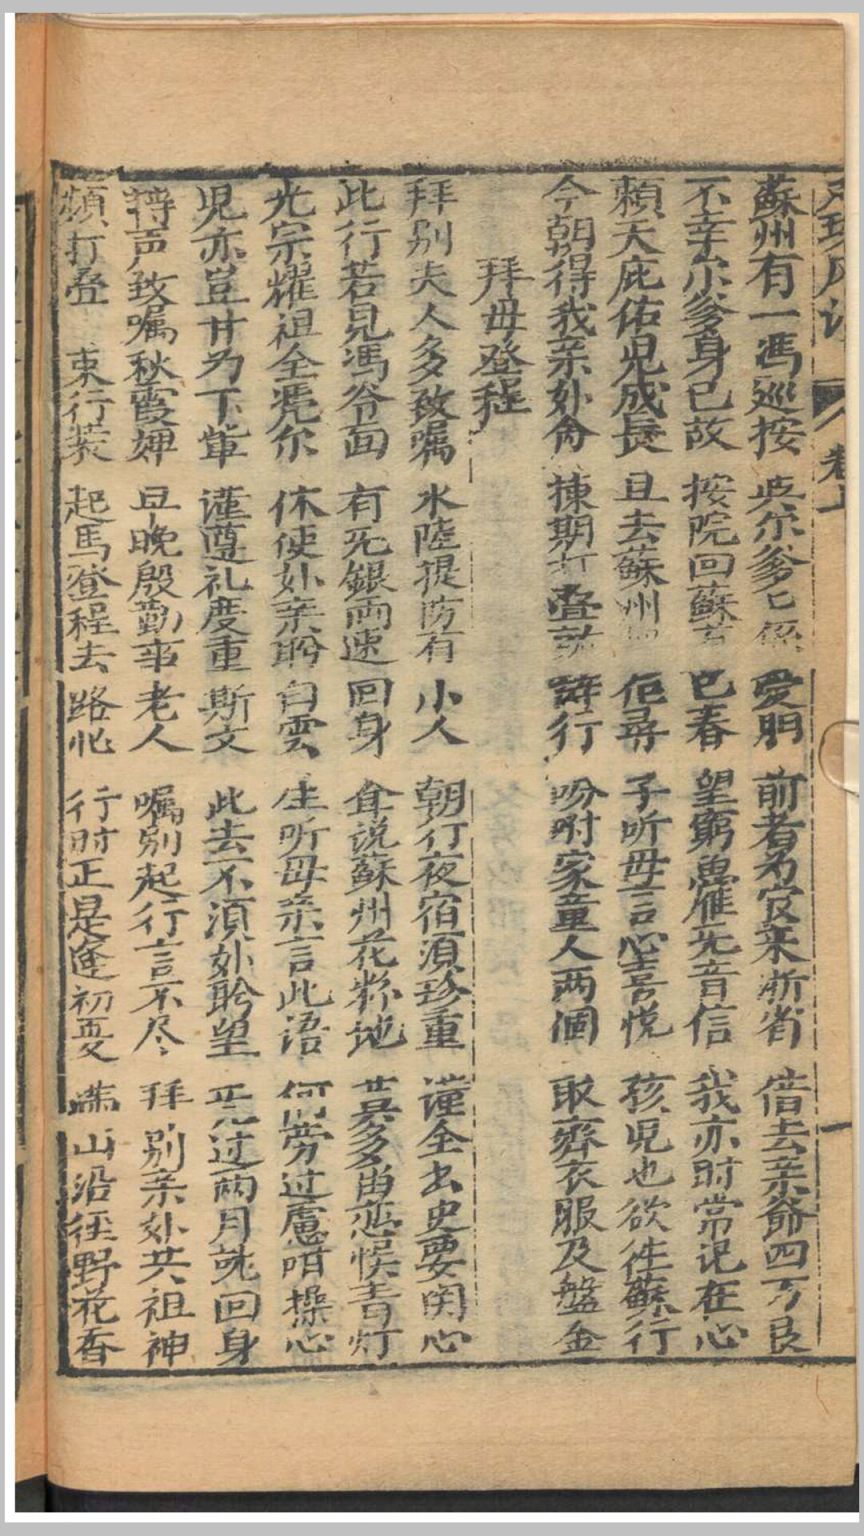 蘇州有一馮巡按 與尔爹已係愛朋 前者为官來浙省 借去亲爺四万艮
不幸尔爹身已故 按院回蘇 已春 望窮魚雁无音信 我亦时常记在心
賴天庇佑児成長 且去蘇州 佢尋 子听毋言心喜悦 孩児也欲徃蘇行
今朝得我亲㚈侖 揀期打叠 行 吩咐家童人两個 取齊衣服及盤金
拜毋登程
拜别夫人多致嘱 水陸提防有小人 朝行夜宿湏珍重 谨全出史要関心
此行若見馮爷面 有无銀両速回身 耸说蘇州花粉地 莫多留恋悮青灯
光宗耀祖全凴尔 休使㚈亲盼白雲 生听毋亲言此语 何劳过慮咁操心
児亦豈甘为下軰 谨遵礼度重斯文 此去不湏㚈盼望 无过两月就回身
轉声致嘱秋霞婢 早晚殷勤事老人 嘱别起行言不尽 拜别亲㚈共祖神
頻打叠 束行装 起馬登程去路忙 行时正是逢初夏 满山沿徑野花香
卷上